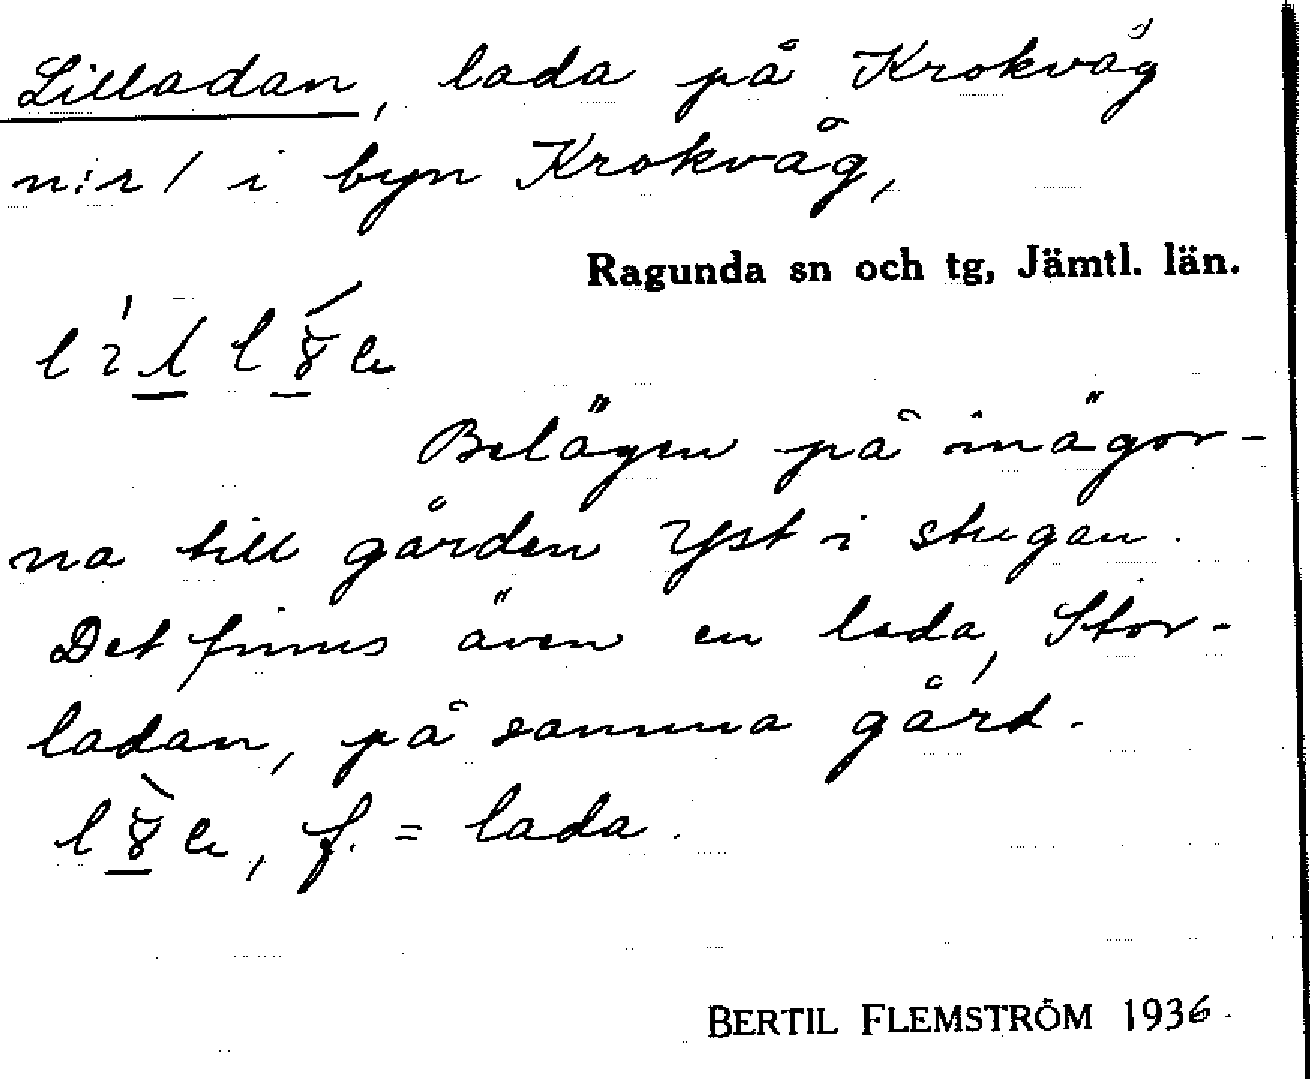 Lilladan, lada på Krokvåg
n:r 1 i byn Krokvåg,
Ragunda sn och tg, Jämtl. län.
Belägen på inägor-
na till gården Yst i stugan.
Det finns även en lada, Stor-
ladan, på samma gård.
f. = lada.
BERTIL FLEMSTRÖM 1936